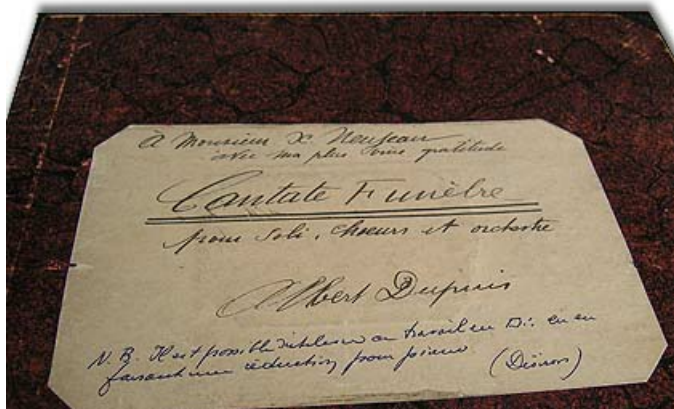 À Monsieur X. Neujean
avec ma plus vive gratitude
Cantate Funèbre
pour Soli, Choeurs et orchestre
Albert Dupuis
N. B. Il est possible d'utiliser ce travail en en
faisant une réduction pour piano